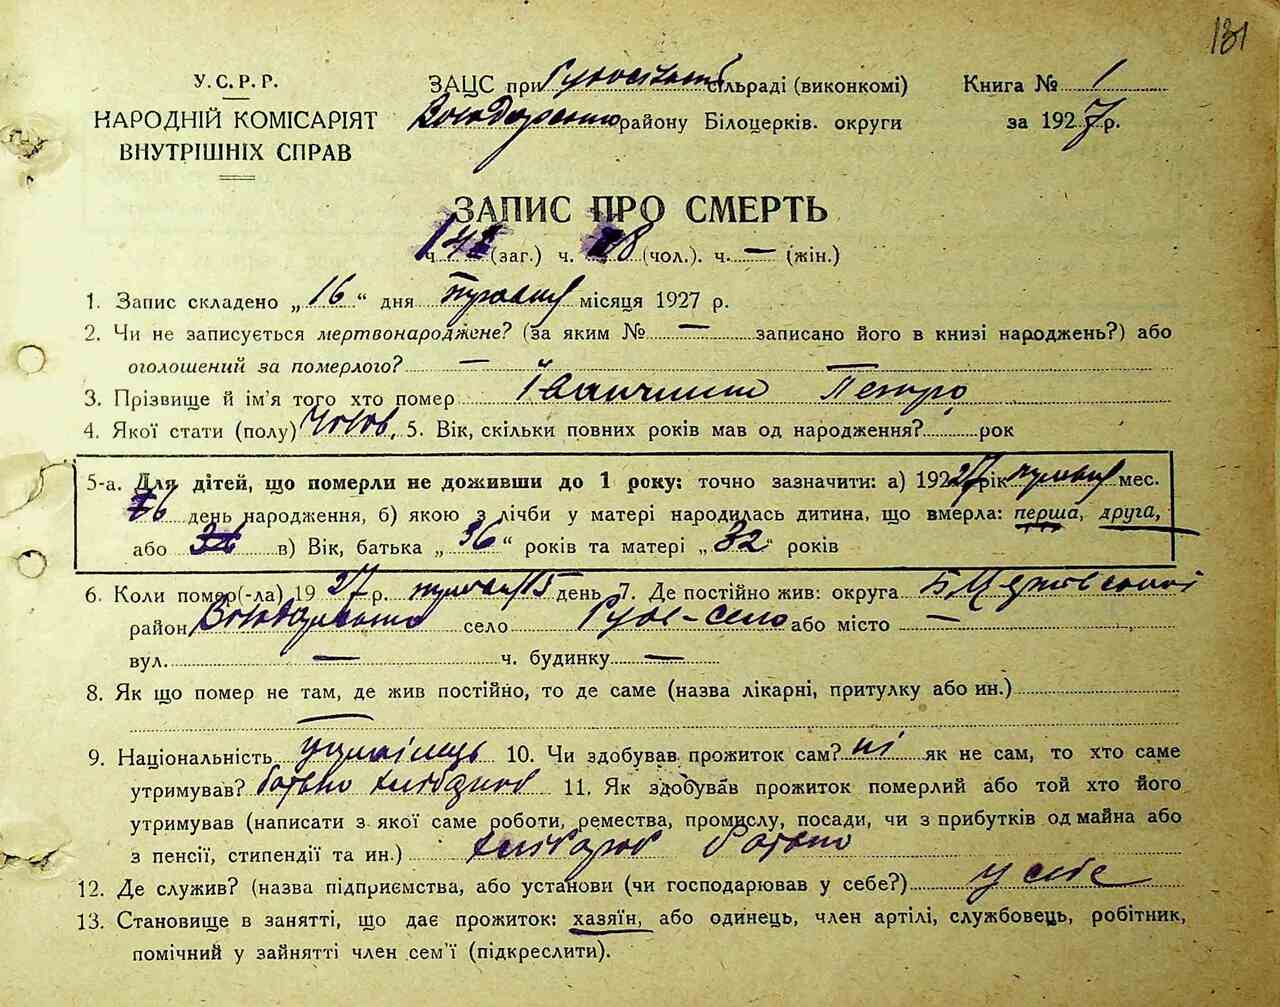 131
У.С.Р.Р.
НАРОДНІЙ КОМІСАРІЯТ
ВНУТРІШНІХ СПРАВ
ЗАЦС при Рудосільській сільраді (виконкомі)
Володарського району Білоцерків. округи
Книга № 1
за 1927 р.
ЗАПИС ПРО СМЕРТЬ
ч. 148 (заг.) ч. 88 (чол.). ч. — (жін.)
1. Запис складено „16“ дня місяця 1927 р.
2. Чи не записується мертвонароджене? (за яким № — записано його в книзі народжень?) або
оголошений за померлого? —
3. Прізвище й ім'я того хто помер Іванчишин Петро
4. Якої стати (полу) Чолов. 5. Вік, скільки повних років мав од народження? рок
5-а. Для дітей, що померли не доживши до 1 року: точно зазначити: а) 1927 рік мес.
день народження, б) якою з лічби у матері народилась дитина, що вмерла: перша, друга,
або в) Вік, батька „36“ років та матері „32“ років
6. Коли помер(-ла) 1927 р. 15 день 7. Де постійно жив: округа Б Церковської
район Володарського село Руде-село або місто —
вул. — ч. будинку —
8. Як що помер не там, де жив постійно, то де саме (назва лікарні, притулку або ин.)
—
9. Національність українець 10. Чи здобував прожиток сам? ні як не сам, то хто саме
утримував? батько хлібороб 11. Як здобував прожиток померлий або той хто його
утримував (написати з якої саме роботи, ремества, промислу, посади, чи з прибутків од майна або
з пенсії, стипендії та ин.) хлібороб батько
12. Де служив? (назва підприємства, або установи (чи господарював у себе?) у себе
13. Становище в занятті, що дає прожиток: хазяїн, або одинець, член артілі, службовець, робітник,
помічний у зайнятті член сем'ї (підкреслити).